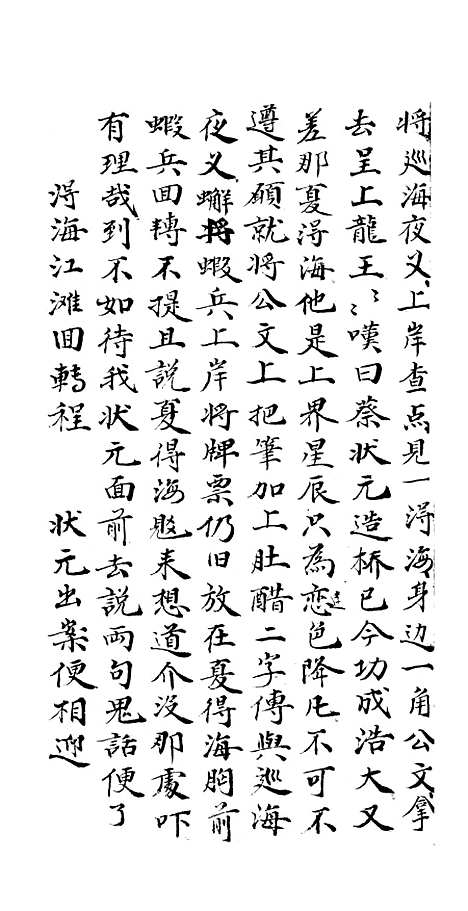 将巡海夜叉上岸查点見一淂海身边一角公文拿
去呈上龍王〻嘆曰蔡状元造桥已今功成浩大又
差那夏淂海他是上界星辰只為恋色降凡不可不
遵其願就将公文上把筆加上𦘭醋二字傳與巡海
夜叉蠏将蝦兵上岸将牌票仍旧放在夏得海胸前
蝦兵回轉不提且說夏得海起来想道介没那處吓
有理哉到不如待我状元面前去說兩句鬼話便了
淂海江滩回轉程　状元出案便相迎